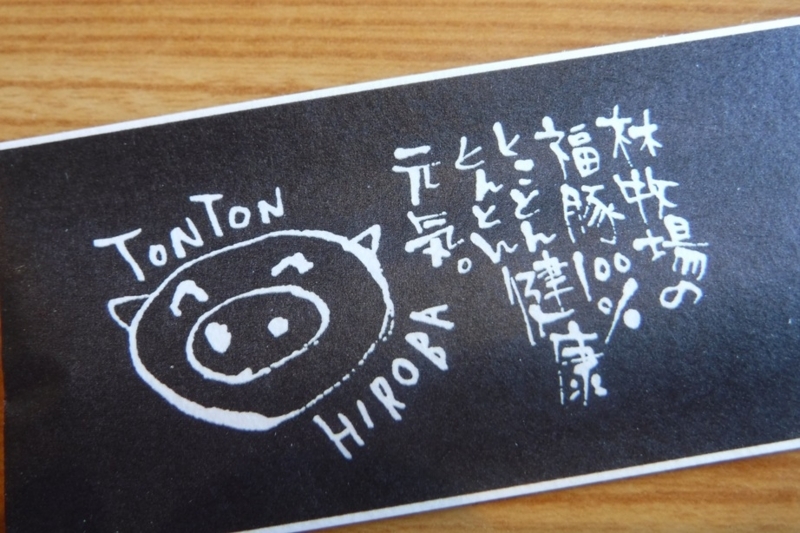 林牧場の
福豚100%
とことん健康
とんとん
元気。
TONTON
HIROBA